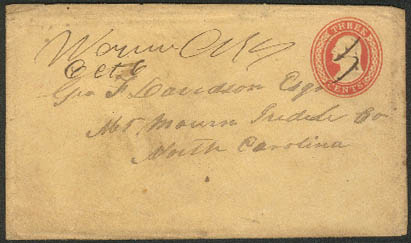 THREE
CENTS
Oct 6
Geo F Davidson Esqr
Mt. Mourn Iredell Co
North Carolina